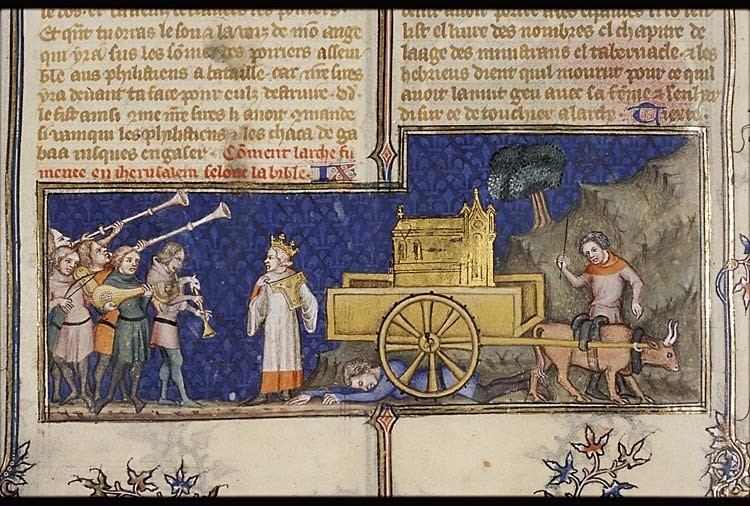 Et qñt tu orras le son a la uois de mõ ange
qui yra sus les sõmes des poiriers assem
ble aus philistiens a bataille. car nr̃e sires
yra deuant ta face pour eulz destruire. dd.
le fist ainsi 9me nr̃e sires li auoit 9mande
si vainqui les phylistiens & les chaca de ga
baa iusques en gaser. Cõment larche fu
menee en iherusalem selonc la bible. IX
el liure des nombres el chapitre de
laage des ministrans el tabernacle. & les
hebrieus dient quil mourut pour ce quil
auoit la nuit geu auec sa fẽme &
sur ce de touchier a larche. Texte